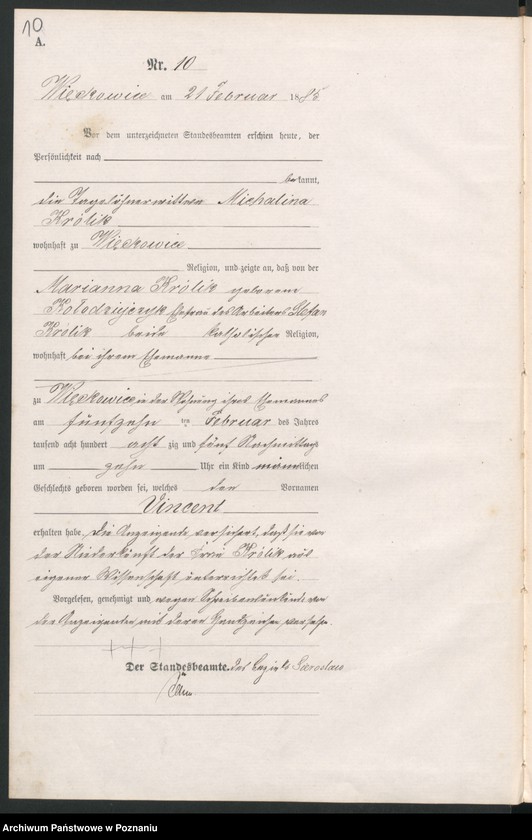 10
A.
Nr. 10
Więckowice am 21 Februar 1885
Vor dem unterzeichneten Standesbeamten erschien heute, der
Persönlichkeit nach
bekannt,
die Tagelöhnerwittwe Michalina
Królik
wohnhaft zu Więckowice
Religion, und zeigte an, daß von der
Marianna Królik geborene
Kołodziejczyk Ehefrau des Arbeiters Stefan
Królik beide katholischer Religion,
wohnhaft bei ihrem Ehemanne
zu Więckowice in der Wohnung ihres Ehemannes
am fünfzehn ten Februar des Jahres
tausend acht hundert acht zig und fünf Nachmittags
um zehn Uhr ein Kind männlichen
Geschlechts geboren worden sei, welches den Vornamen
Vincent
erhalten habe. Die Anzeigende versichert, daß sie von
der Niederkunft der Frau Królik aus
eigener Wissenschaft unterrichtet sei.
Vorgelesen, genehmigt und wegen Schreibensunkunde von
der Anzeigenden mit deren Handzeichen versehen.
+++
Der Standesbeamte. des Bezirks
Archiwum Państwowe w Poznaniu